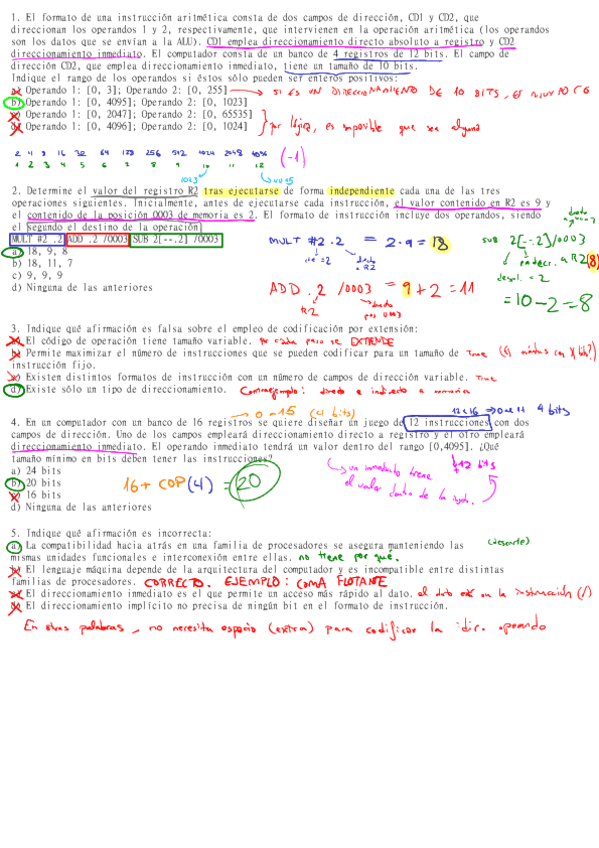 1. El formato de una instrucción aritmética consta de dos campos de dirección, CD1 y CD2, que
direccionan los operandos 1 y 2, respectivamente, que intervienen en la operación aritmética (los operandos
son los datos que se envían a la ALU). CD1 emplea direccionamiento directo absoluto a registro y CD2
direccionamiento inmediato. El computador consta de un banco de 4 registros de 12 bits. El campo de
dirección CD2, que emplea direccionamiento inmediato, tiene un tamaño de 10 bits.
Indique el rango de los operandos si éstos sólo pueden ser enteros positivos:
a) Operando 1: [0, 3]; Operando 2: [0, 255] → SI ES UN DIRECCIONAMIENTO DE 10 BITS,
b) Operando 1: [0, 4095]; Operando 2: [0, 1023]
c) Operando 1: [0, 2047]; Operando 2: [0, 65535]
d) Operando 1: [0, 4096]; Operando 2: [0, 1024] por lógica, es imposible que sea alguna
2 4 8 16 32 64 128 256 512 1024 2048 4096 (-1)
1 2 3 4 5 6 7 8 9 10 11 12
1023 4095
2. Determine el valor del registro R2 tras ejecutarse de forma independiente cada una de las tres
operaciones siguientes. Inicialmente, antes de ejecutarse cada instrucción, el valor contenido en R2 es 9 y
el contenido de la posición 0003 de memoria es 2. El formato de instrucción incluye dos operandos, siendo
el segundo el destino de la operación)
MULT #2 .2 ADD .2 /0003 SUB 2[--.2] /0003
a) 18, 9, 8
b) 18, 11, 7
c) 9, 9, 9
d) Ninguna de las anteriores
MULT #2 .2 = 2·9 = 18
ADD .2 /0003 = 9+2 = 11
R2
SUB 2[--.2]/0003
despl. = 2
=10-2=8
3. Indique qué afirmación es falsa sobre el empleo de codificación por extensión:
a) El código de operación tiene tamaño variable. EXTIENDE
b) Permite maximizar el número de instrucciones que se pueden codificar para un tamaño de True
instrucción fijo.
c) Existen distintos formatos de instrucción con un número de campos de dirección variable. True
d) Existe sólo un tipo de direccionamiento. Contraejemplo: directo e indirecto a memoria
→ 0 a 15 (4 bits) 12<16 → 0 a 11 4 bits
4. En un computador con un banco de 16 registros se quiere diseñar un juego de 12 instrucciones con dos
campos de dirección. Uno de los campos empleará direccionamiento directo a registro y el otro empleará
direccionamiento inmediato. El operando inmediato tendrá un valor dentro del rango [0,4095]. ¿Qué
tamaño mínimo en bits deben tener las instrucciones?
a) 24 bits
b) 20 bits
c) 16 bits
d) Ninguna de las anteriores
16 + COP(4) = 20
un inmediato tiene
el valor dentro de la
12 bits
5. Indique qué afirmación es incorrecta:
a) La compatibilidad hacia atrás en una familia de procesadores se asegura manteniendo las (descarte)
mismas unidades funcionales e interconexión entre ellas. no tiene por qué.
b) El lenguaje máquina depende de la arquitectura del computador y es incompatible entre distintas
familias de procesadores. CORRECTO. EJEMPLO: COMA FLOTANTE
c) El direccionamiento inmediato es el que permite un acceso más rápido al dato. el dato está en la instrucción
d) El direccionamiento implícito no precisa de ningún bit en el formato de instrucción.
En otras palabras, no necesita espacio (extra) para codificar la dir. operando